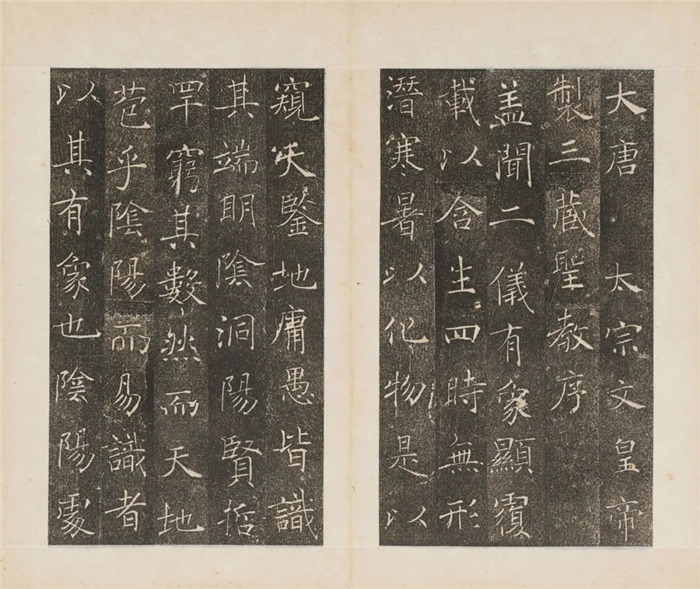 大唐太宗文皇帝
製三藏聖教序
盖聞二儀有象顯覆
載以含生四時無形
潛寒暑以化物是以
窺天鑒地庸愚皆識
其端明陰洞陽賢哲
罕窮其數然而天地
苞乎陰陽而易識者
以其有象也陰陽處